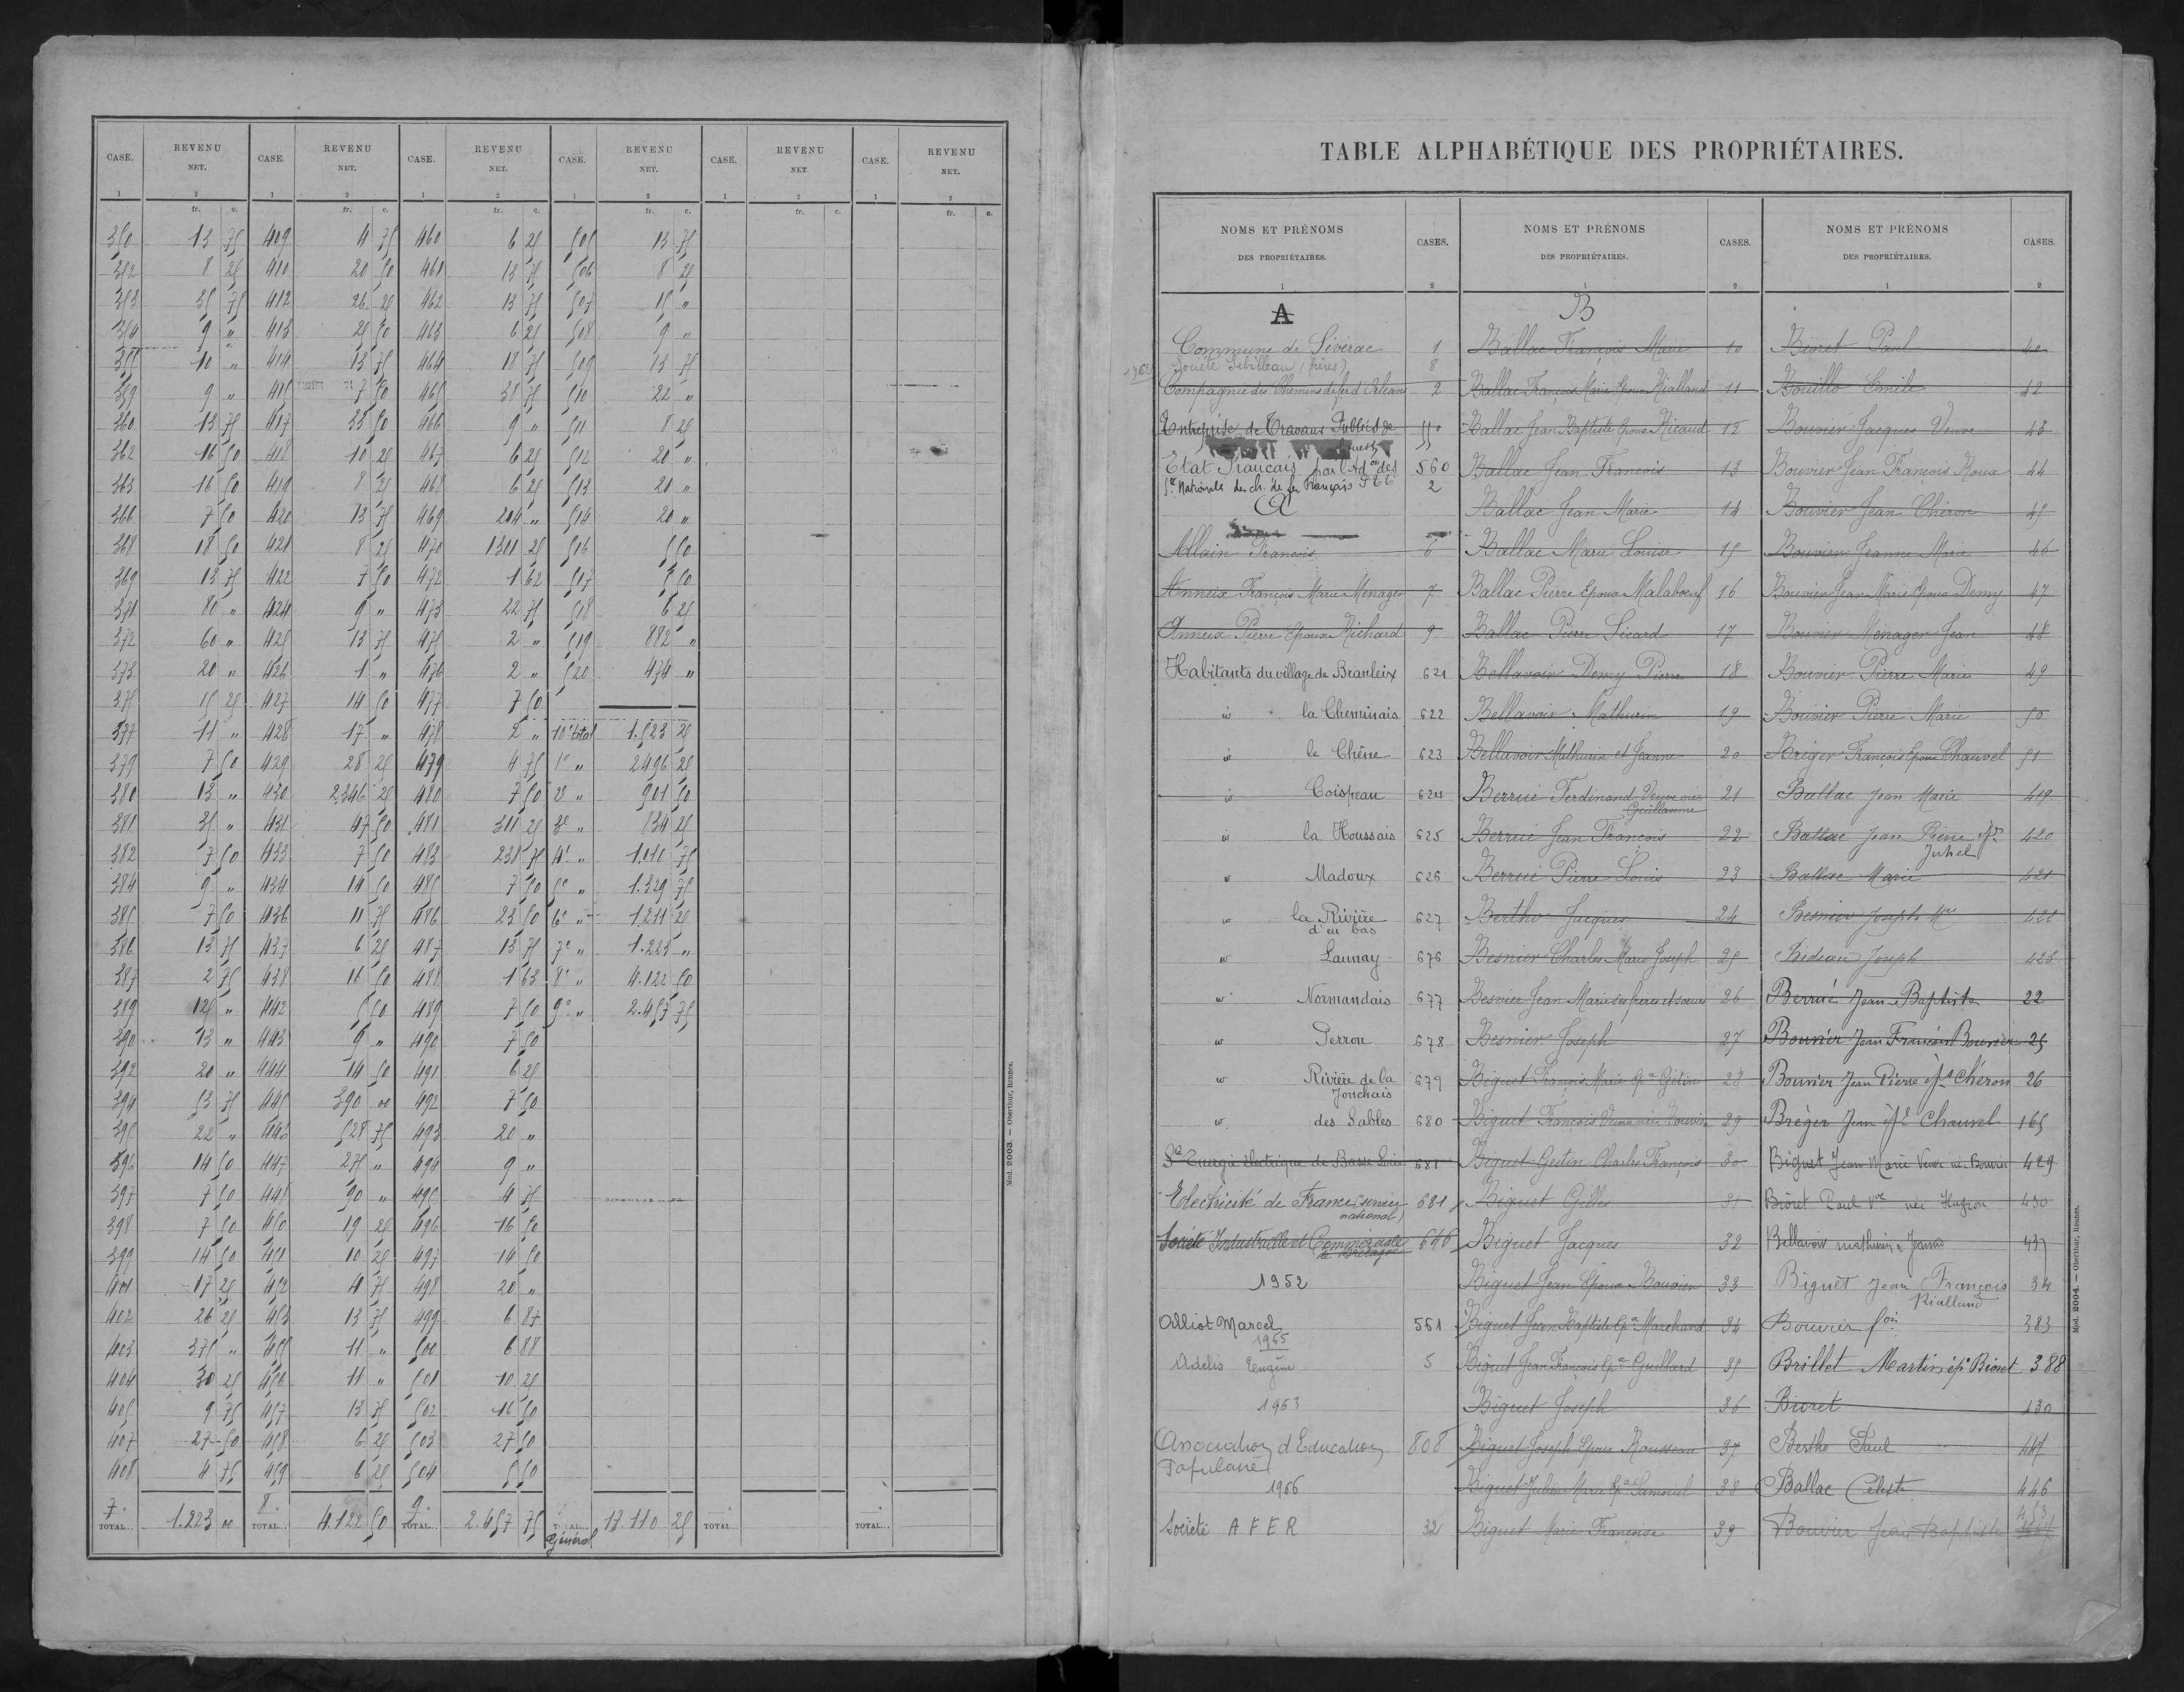 CASE. REVENU NET. CASE. REVENU NET. CASE. REVENU NET. CASE. REVENU NET. CASE. REVENU NET. CASE. REVENU NET.
1 2 1 2 1 2 1 2 1 2 1 2
fr. c. fr. c. fr. c. fr. c. fr. c. fr. c.
350 13 75 409 4 75 460 6 25 505 13 75
352 8 25 410 20 50 461 13 75 506 8 25
353 35 75 412 26 25 462 13 75 507 15 "
354 9 " 413 25 50 463 6 25 508 9 "
355 10 " 414 13 75 464 18 75 509 13 75
359 9 " 415 7 50 465 38 75 510 22 "
360 13 75 417 35 50 466 9 " 511 8 25
362 16 50 418 10 25 467 6 25 512 20 "
363 16 50 419 8 25 468 6 25 513 20 "
366 7 50 420 13 75 469 204 " 514 20 "
368 18 50 421 8 25 470 1311 25 516 5 50
369 13 75 422 7 50 472 1 62 517 5 50
371 80 " 424 9 " 473 22 75 518 6 25
372 60 " 425 13 75 475 2 " 519 882 "
373 20 " 426 1 " 476 2 " 520 474 "
375 15 25 427 14 50 477 7 50
377 11 " 428 17 " 478 2 " 10e total 1.523 25
379 7 50 429 28 25 479 4 75 1e " 2496 25
380 13 " 430 2.346 25 480 7 50 2e " 901 50
381 35 " 431 47 50 481 311 25 3e " 834 25
382 7 50 433 7 50 483 238 75 4e " 1.010 75
384 9 " 434 14 50 485 7 50 5e " 1.329 75
385 7 50 436 11 75 486 23 50 6e " 1.211 25
386 13 75 437 6 25 487 13 75 7e " 1.223 "
387 2 75 438 16 50 488 1 63 8e " 4.122 50
389 125 " 442 5 50 489 7 50 9e " 2.457 75
390 13 " 443 9 " 490 7 50
392 20 " 444 14 50 491 6 25
394 53 75 445 390 00 492 7 50
395 22 " 446 528 75 493 20 "
396 14 50 447 275 " 494 9 "
397 7 50 448 90 " 495 4 75
398 7 50 450 19 25 496 16 50
399 14 50 451 10 25 497 14 50
401 17 25 452 4 75 498 20 "
402 26 25 453 13 75 499 6 87
403 375 " 455 11 " 500 6 88
404 30 25 456 11 " 501 10 25
405 9 75 457 13 75 502 16 50
407 27 50 458 6 25 503 27 50
408 4 75 459 6 25 504 5 50
7e TOTAL... 1.223 00 8e TOTAL... 4.122 50 9e TOTAL... 2.457 75 TOTAL... Général 17.110 25 TOTAL... TOTAL...
Mod. 2003. — Oberthur, Rennes.
TABLE ALPHABÉTIQUE DES PROPRIÉTAIRES.
NOMS ET PRÉNOMS DES PROPRIÉTAIRES. CASES. NOMS ET PRÉNOMS DES PROPRIÉTAIRES. CASES. NOMS ET PRÉNOMS DES PROPRIÉTAIRES. CASES.
1 2 1 2 1 2
A
Commune de Sévérac 1
1962 Société Sébilleau (frères) 8
Compagnie des Chemins de fer d'Orléans 2
Entreprise de Travaux Publics de
l'ouest
Etat Français par l'Adon des P.T.T. 560
Sté Nationale des ch. de fer Français 2
A
Allain François 6
Anneix François Marie Ménager 7
Anneix Pierre Epoux Richard 9
Habitants du village de Branleix 621
id la Cheminais 622
id le Chêne 623
id Coispeau 624
id la Houssais 625
id Madoux 626
id la Rivière d'en bas 627
id Launay 676
id Normandais 677
id Perron 678
id Rivière de la Jonchais 679
id des Sables 680
Sté Energie électrique de Basse Loire 681
Electricité de France (service national) 681
Société Industrielle et Commerciale de Bretagne 646
1952
Alliot Marcel 561
1965
Adelis Eugène 5
1963
Association d'Education Populaire 808
1966
Société A F E R 32
B
Ballac François Marie 10
Ballac François Marie Epoux Rialland 11
Ballac Jean Baptiste Epoux Ricaud 12
Ballac Jean François 13
Ballac Jean Marie 14
Ballac Marie Louise 15
Ballac Pierre Epoux Malaboeuf 16
Ballac Pierre Sicard 17
Bellavoir Demy Pierre 18
Bellavoir Mathurin 19
Bellavoir Mathurin et Jeanne 20
Berrué Ferdinand Veuve née Guillaume 21
Berrué Jean François 22
Berrué Pierre Louis 23
Bertho Jacques 24
Besnier Charles Marie Joseph 25
Besnier Jean Marie ses frères et soeurs 26
Besnier Joseph 27
Biguet François Marie Ep. Gétin 28
Biguet François Veuve née Bouvier 29
Biguet Gestin Charles François 30
Biguet Gilles 31
Biguet Jacques 32
Biguet Jean Epoux Bouvier 33
Biguet Jean Baptiste Epx Marchand 34
Biguet Jean François Epx Guillard 35
Biguet Joseph 36
Biguet Joseph Epoux Rousseau 37
Biguet Julien Marie Epx Samoval 38
Biguet Marie Françoise 39
Bioret Paul 40
Bouillo Emile 42
Bouvier Jacques Veuve 43
Bouvier Jean François Roux 44
Bouvier Jean Chéron 45
Bouvier Jeanne Marie 46
Bouvier Jean Marie Epoux Demy 47
Bouvier Ménager Jean 48
Bouvier Pierre Marie 49
Bouvier Pierre Marie 50
Bréger François Epoux Chauvel 51
Ballac Jean Marie 419
Ballac Jean Pierre épx Juhel 420
Ballac Marie 421
Besnier Joseph Mie 422
Bideau Joseph 423
Berrué Jean Baptiste 22
Bouvier Jean François Bouvier 25
Bouvier Jean Pierre épx Chéron 26
Bréger Jean épx Chauvel 165
Biguet Jean Marie Veuve née Bouvier 429
Bioret Paul Vve née Hagron 430
Bellavoir Mathurin & Jeanne 437
Biguet Jean François Rialland 34
Bouvier fois 383
Brillet Martin ép. Bioret 388
Bioret 430
Bertho Paul 447
Ballac Céleste 446
Bouvier Jean Baptiste 453
Mod. 2004. — Oberthur, Rennes.